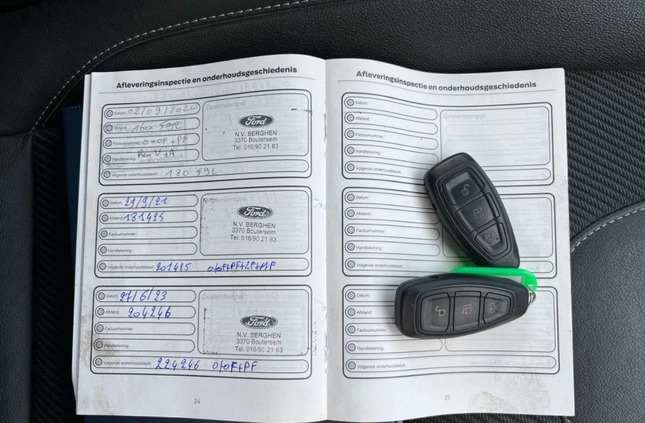 Afleveringsinspectie en onderhoudsgeschiedenis
Datum: 02/09/2020
Afstand: 160 592
Factuurnummer: O+OF+PF
Handtekening:
Volgende onderhoudsbeurt: 180 592
Dealerstempel
Ford
N.V. BERGHEN
3370 Boutersem
Tel. 016/90 21 83
Datum: 29/9/21
Afstand: 181425
Factuurnummer:
Handtekening:
Volgende onderhoudsbeurt: 201425 O+OF+PF+LF+IF
Ford
N.V. BERGHEN
3370 Boutersem
Tel. 016/90 21 83
Datum: 27/6/23
Afstand: 204246
Factuurnummer:
Handtekening:
Volgende onderhoudsbeurt: 224246 O+OF+PF
Ford
N.V. BERGHEN
3370 Boutersem
Tel. 016/90 21 83
24
Afleveringsinspectie en onderhoudsgeschiedenis
Datum:
Afstand:
Factuurnummer:
Handtekening:
Volgende onderhoudsbeurt:
Dealerstempel
Datum:
Afstand:
Factuurnummer:
Handtekening:
Volgende onderhoudsbeurt:
Datum:
Afstand:
Factuurnummer:
Handtekening:
Volgende onderhoudsbeurt:
25